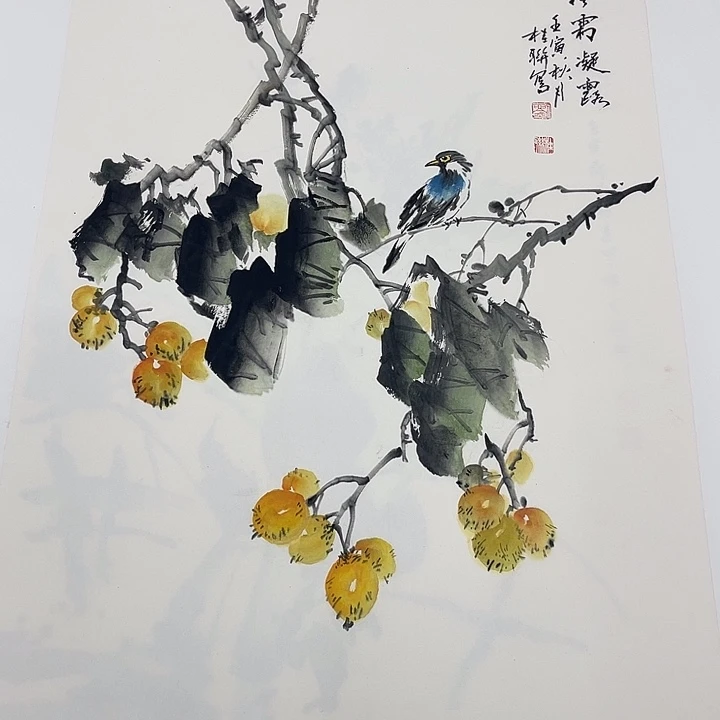 霜凝露
壬寅秋月
桂聯寫